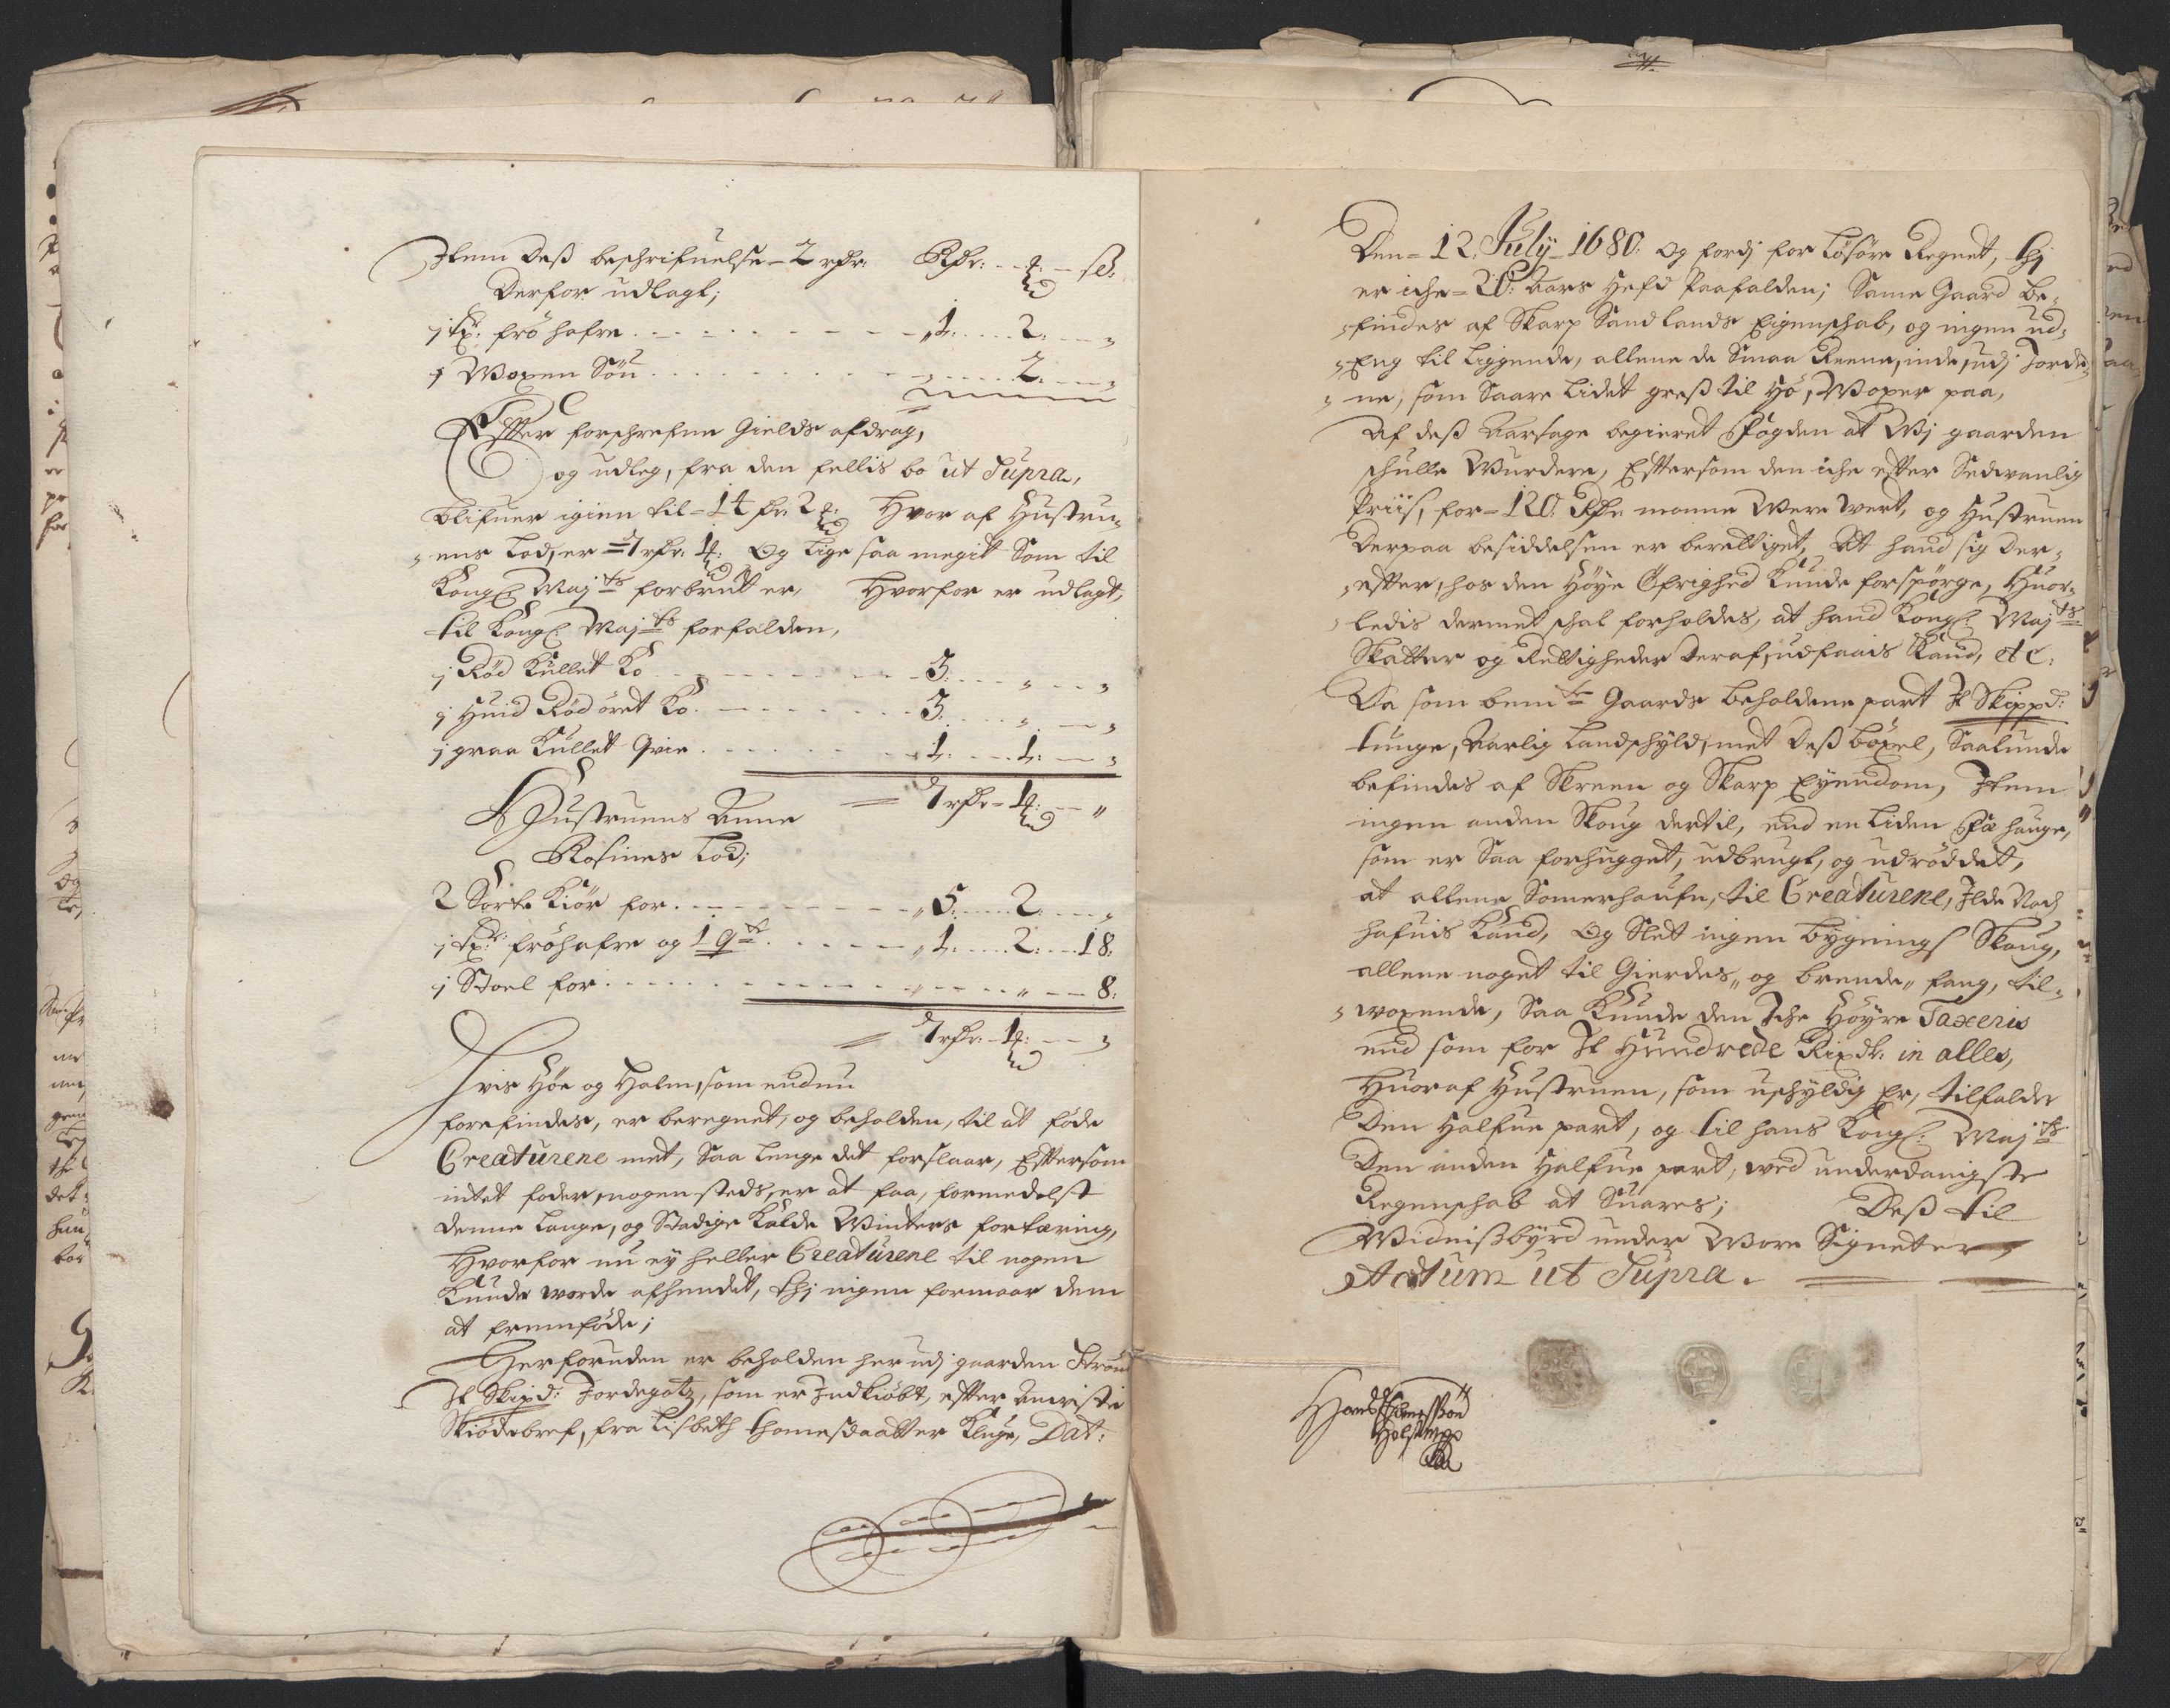 Item Deß beschrifuelse - 2 rdr: Rdr: - ß:
Derfor udlagt;
1 tr: frö hafre . . . 1: . . 2: . .
1 Woxen Söu . . . 2: . .
Efter forschrefne Gields afdrag,
og udleg, fra den fellis bo ut Supra,
blifuer igien til = 14 rdr 2 Hvor af Hustru-
ens Lod, er = 7 rdr: 1: Og lige saa megit Som til
Kongl: Maj:ts forbrut er, Hvorfor er udlagt,
til Kongl: Maj:ts forfalden,
1 Rød Kullet Ko . . . 3: . .
1 Huid Rød öret Ko . . . 3: . .
1 graa Kullet Qvie . . . 1: . . 1: . .
= 7 rdr - 1: -
Hustruens Anne
Rosines Lod;
2 Sorte Kiör for . . . 5: . . 2: . .
1 tr: fröhafre og 1 qr . . . 1: . . 2: . . 18:
1 Stoel for . . . 8:
= 7 rdr: - 1: -
Hvis Höe og Halm, som endnu
forefindes, er beregnet, og beholden, til at föde
Creaturene met, Saa lenge det forslaar, Eftersom
intet foder, nogensteds, er at faa, formedelst
denne lange, og Stadige Kolde Winters fortæring,
Hvorfor nu ey heller Creaturene til nogen
Kunde worde afhendet, thj ingen formaar dem
at fremföde;
Herforuden er beholden her udj gaarden
It Skipd: Jordegotz, som er Indkiöbt, efter anviste
Skiödebref, fra Lisbeth Thomesdaatter Kluge, Dat:
Den = 12. July - 1680: og fordj for Lösöre Regnet, thj
er iche = 20: Aars Hefd Paafalden; Same Gaard be-
findes af Skarp Sandlands Eigenschab, og ingen ud-
Eng til liggende, allene de Smaa Reene, inde, udj Jorde-
ne, som Saare lidet greß til Hö, Woxer paa,
Af deß Aarsage begieret Fogden at Wj gaarden
schulle Wurdere, Eftersom den iche efter Sedvanlig
Priis, for = 120 Rdr monne Were Wert, og Hustruen
Derpaa besiddelsen er berettiget, At hand sig der-
efter, hos den Höye Öfrighed Kunde forspörge, Huor-
ledis dermet schal forholdes, at hand Kongl: Maj:ts
Skatter og Rettigheder Deraf, udfaais Kand, etc:
Da som bem:te Gaards beholdene part It Skippd:
tunge, Aarlig Landschyld, met Deß böxel, Saalunde
befindes af Skreen og Skarp Eyendom, Item
ingen anden Skoug dertil, end en liden Fæ hauge,
som er Saa forhugget, udbrugt, og udröddet,
at allene Somerhaufn, til Creaturene, Ilde Nock
hafuis Kand, Og Slet ingen bygnings Skoug,
allene noget til Gierdes, og brende, fang, til-
woxende, Saa Kunde den Iche Höyre Taxeris
end som for It Hundrede Rixdr: in alles,
Huoraf Hustruen, som uschyldig Er, tilfalder
Den Halfue part, og til hans Kongl: Maj:ts
Den anden Halfue part, wed underdanigste
Regenschab at Suares; Deß til
Widnißbyrd under Wore Signeter,
Actum ut Supra.